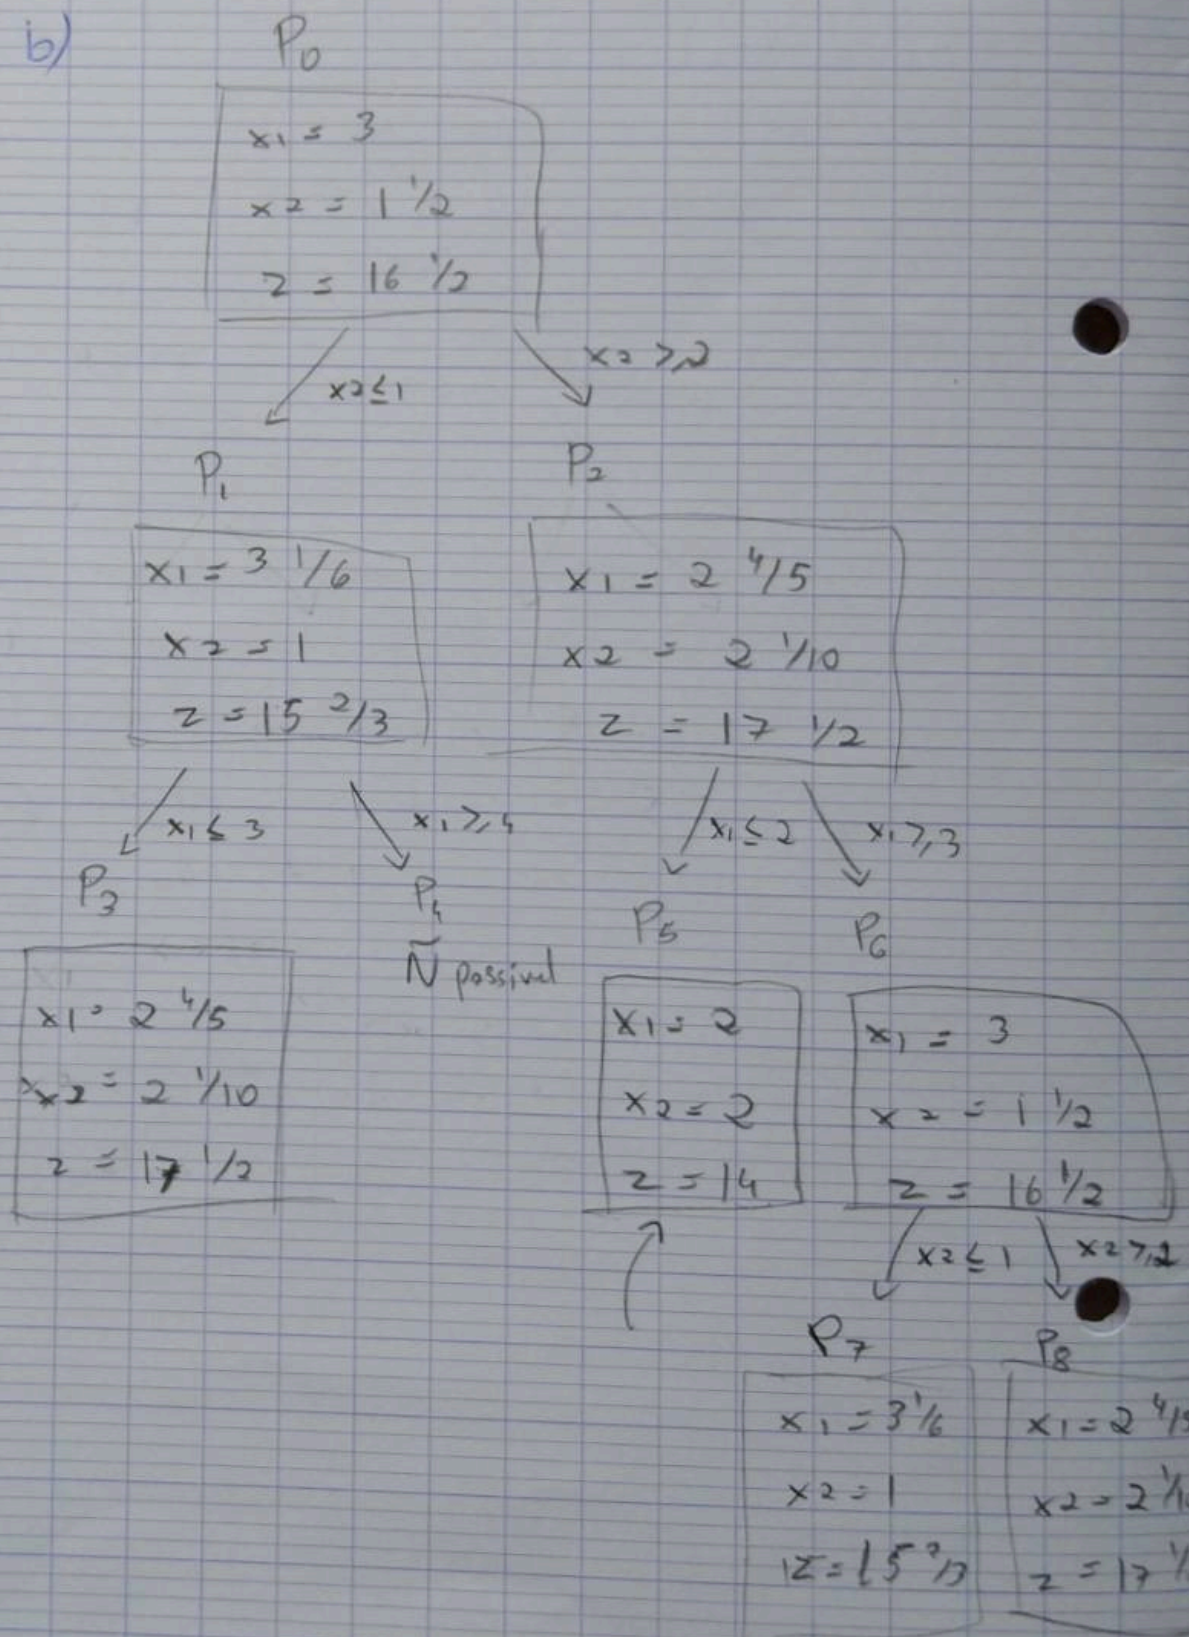 b)
P0
x1 = 3
x2 = 1 1/2
z = 16 1/2
x2 ≤ 1
x2 ≥ 2
P1
x1 = 3 1/6
x2 = 1
z = 15 2/3
P2
x1 = 2 4/5
x2 = 2 1/10
z = 17 1/2
x1 ≤ 3
x1 ≥ 4
x1 ≤ 2
x1 ≥ 3
P3
x1 = 2 4/5
x2 = 2 1/10
z = 17 1/2
P4
Ñ possivel
P5
x1 = 2
x2 = 2
z = 14
P6
x1 = 3
x2 = 1 1/2
z = 16 1/2
x2 ≤ 1
x2 ≥ 2
P7
x1 = 3 1/6
x2 = 1
z = 15 2/3
P8
x1 = 2 4/5
x2 = 2 1/10
z = 17 1/